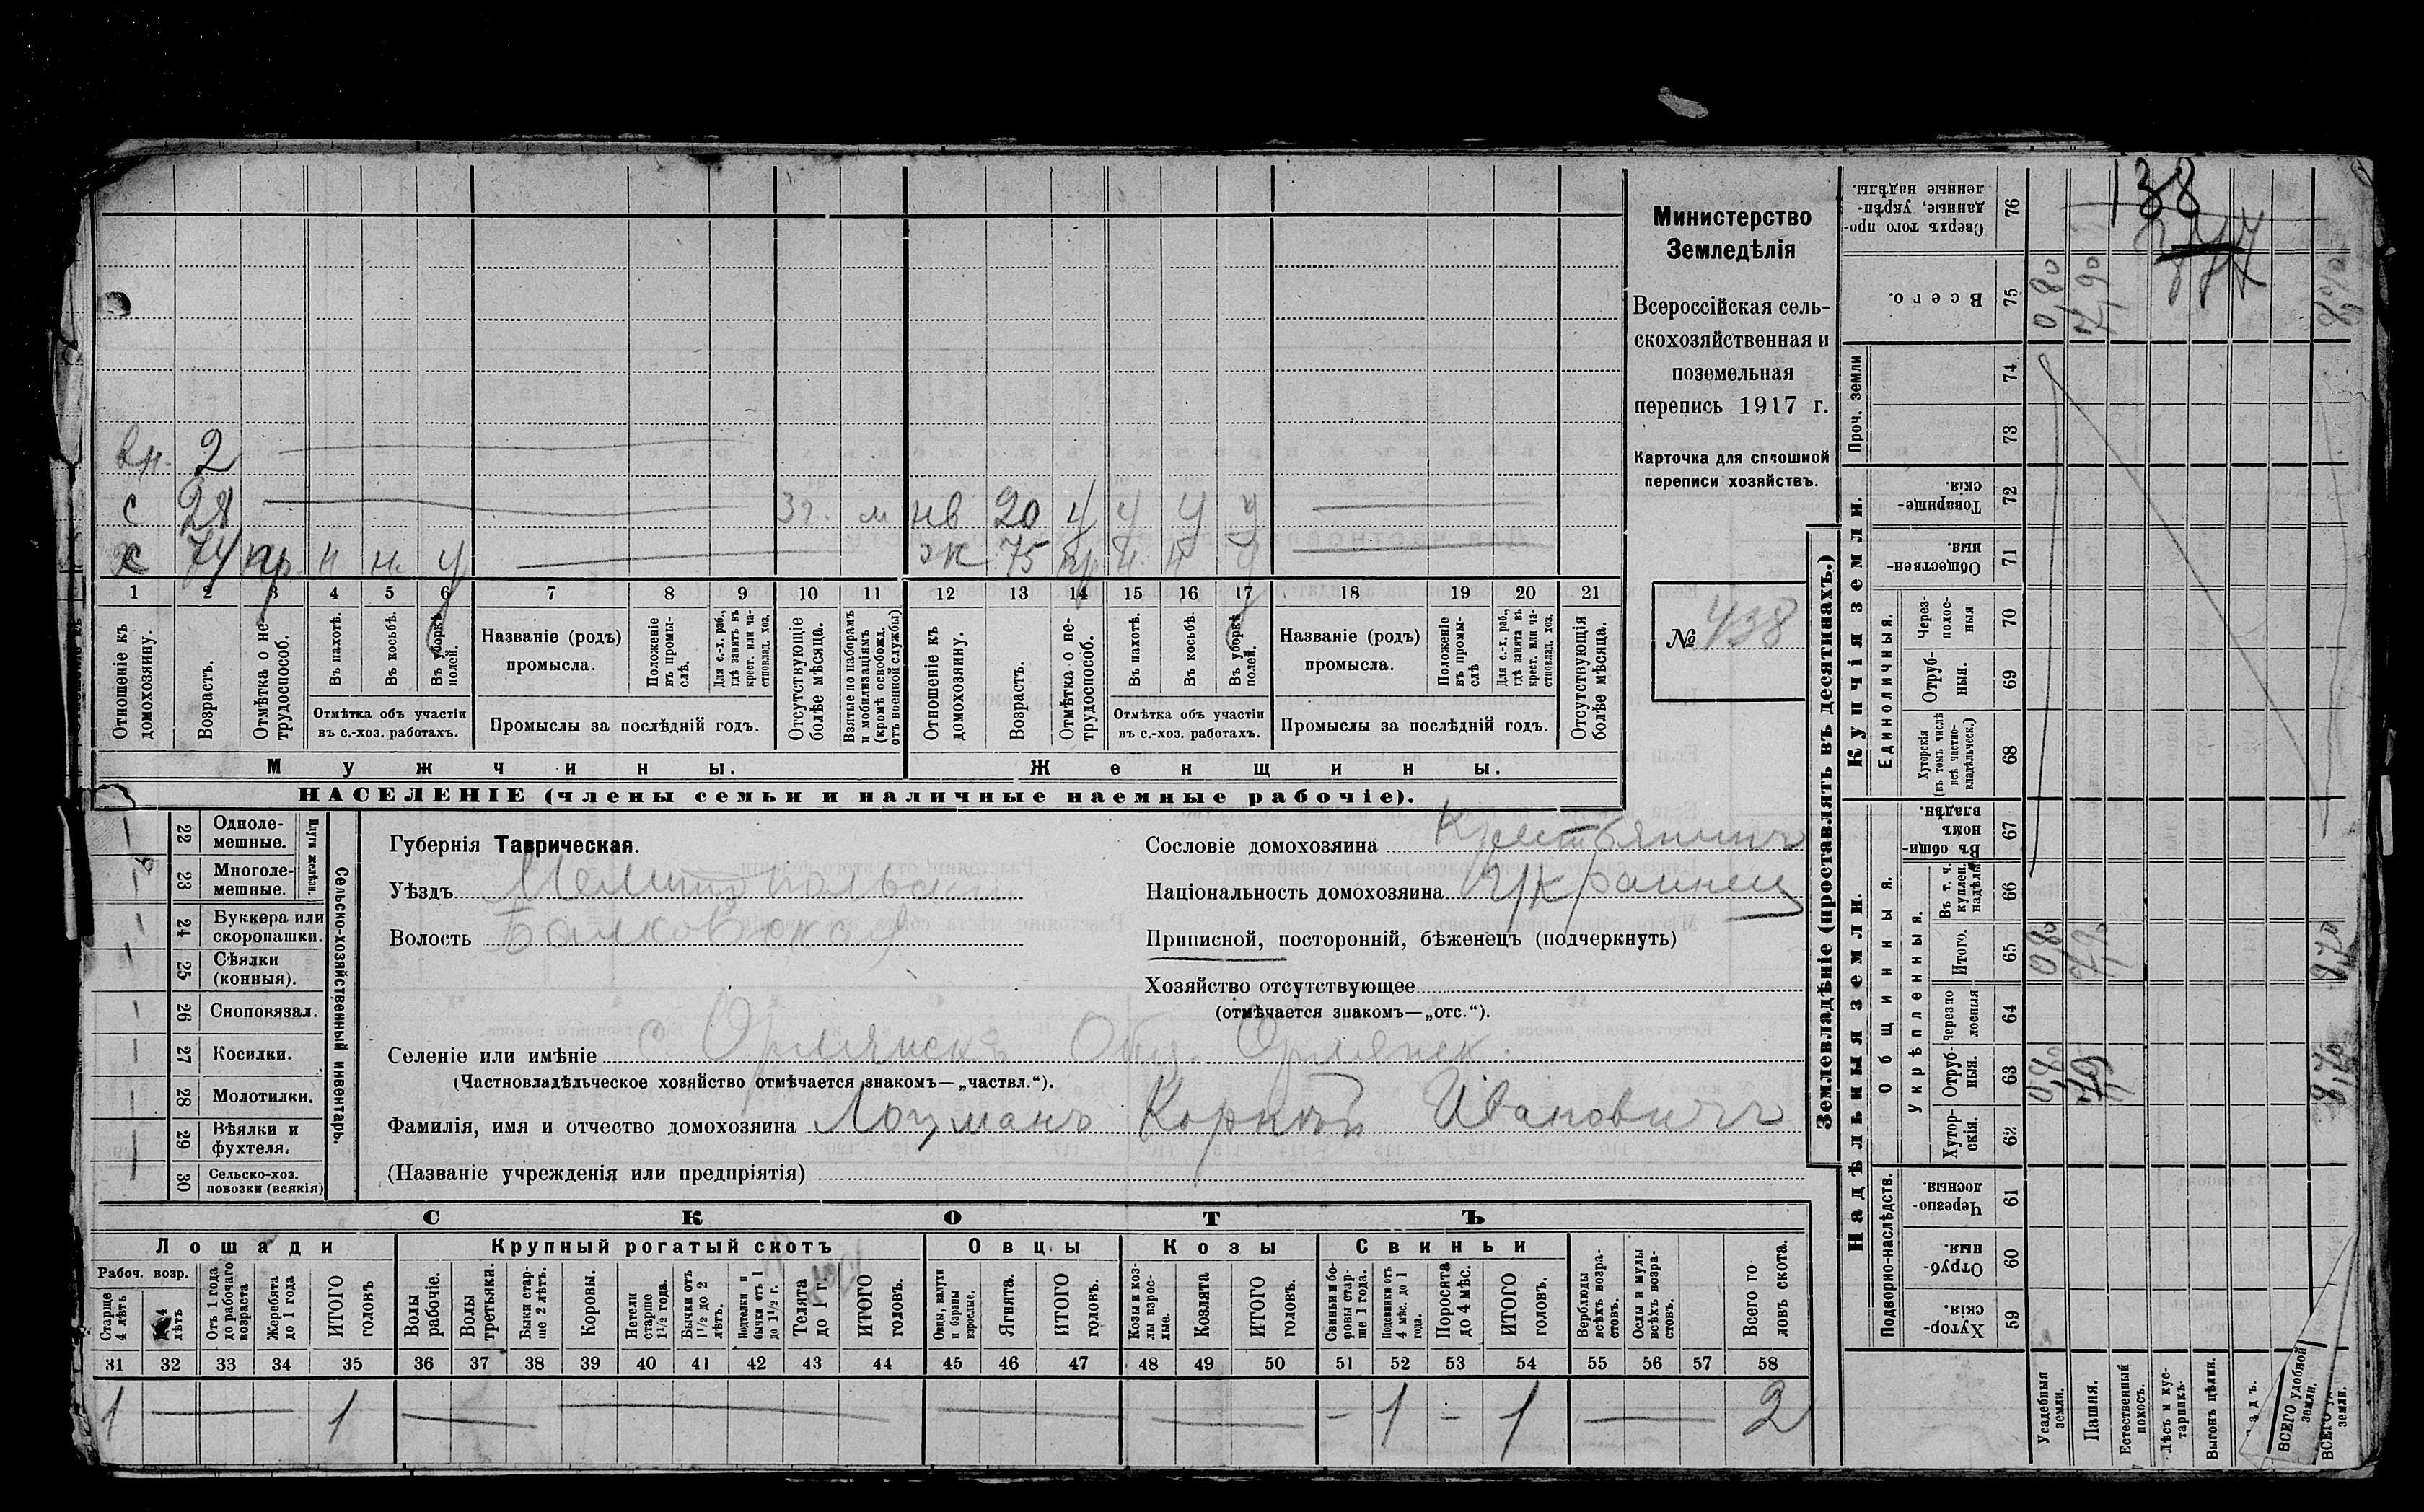 138
Министерство
Земледѣлія
Всероссійская сель-
скохозяйственная и
поземельная
перепись 1917 г.
Карточка для сплошной
переписи хозяйствъ.
№ 438
вн. 2
с 28 3 г. м нв 20 у у у у
х 74 нр н н. у ж 75 нр н. н у
1 2 3 4 5 6 7 8 9 10 11 12 13 14 15 16 17 18 19 20 21
Отношеніе къ домохозяину.
Возрастъ.
Отмѣтка о не-трудоспособ.
Въ пахотѣ.
Въ косьбѣ.
Въ уборкѣ полей.
Отмѣтка объ участіи
въ с.-хоз. работахъ.
Названіе (родъ)
промысла.
Положеніе въ промы-слѣ.
Для с.-х. раб., гдѣ занятъ въ крест. или ча-стновлад. хоз.
Промыслы за послѣдній годъ.
Отсутствующіе болѣе мѣсяца.
Взятые по наборамъ и мобилизаціямъ (кромѣ освобожд. отъ военной службы)
Отношеніе къ домохозяину.
Возрастъ.
Отмѣтка о не-трудоспособ.
Въ пахотѣ.
Въ косьбѣ.
Въ уборкѣ полей.
Отмѣтка объ участіи
въ с.-хоз. работахъ.
Названіе (родъ)
промысла.
Положеніе въ промы-слѣ
Для с.-х. раб., гдѣ занята въ крест. или ча-стновлад. хоз.
Промыслы за послѣдній годъ.
Отсутствующія болѣе мѣсяца.
Мужчины. Женщины.
НАСЕЛЕНІЕ (члены семьи и наличные наемные рабочіе).
Сельско-хозяйственный инвентарь.
Плуги желѣзн.
22 Одноле-мешные.
23 Многоле-мешные.
24 Буккера или скоропашки.
25 Сѣялки (конныя).
26 Сноповязал.
27 Косилки.
28 Молотилки.
29 Вѣялки и фухтеля.
30 Сельско-хоз. повозки (всякія)
Губернія Таврическая.
Уѣздъ Мелитопольскій
Волость Балковская
Сословіе домохозяина Крестьянинъ
Національность домохозяина Украинец
Приписной, посторонній, бѣженецъ (подчеркнуть)
Хозяйство отсутствующее
(отмѣчается знакомъ—„отс.“).
Селеніе или имѣніе с Орлянскъ Общ. Орлянск.
(Частновладѣльческое хозяйство отмѣчается знакомъ—„частвл.“).
Фамилія, имя и отчество домохозяина Лоцманъ Корнѣй Ивановичъ
(Названіе учрежденія или предпріятія)
СКОТЪ
Лошади Крупный рогатый скотъ Овцы Козы Свиньи
Рабоч. возр.
Старше 4 лѣтъ
До 4 лѣтъ
Отъ 1 года до рабочаго возраста
Жеребята до 1 года
ИТОГО головъ
Волы рабочіе.
Волы третьяки.
Быки стар-ше 2 лѣтъ.
Коровы.
Нетели старше 1 1/2 года.
Бычки отъ 1 1/2 до 2 лѣтъ.
Подтелки и бычки отъ 1 до 1 1/2 г.
Телята до 1 г.
ИТОГО головъ.
Овцы, валухи и бараны взрослые.
Ягнята.
ИТОГО головъ.
Козы и коз-лы взрос-лые.
Козлята
ИТОГО головъ.
Свиньи и бо-ровы стар-ше 1 года.
Подсвинки отъ 4 мѣс. до 1 года.
Поросята до 4 мѣс.
ИТОГО головъ.
Верблюды всѣхъ возра-стовъ.
Ослы и мулы всѣхъ возра-стовъ.
Всего го-ловъ скота.
31 32 33 34 35 36 37 38 39 40 41 42 43 44 45 46 47 48 49 50 51 52 53 54 55 56 57 58
1 — 1 — — — — – 1 – 1 — 2
Землевладѣніе (проставлять въ десятинахъ.)
Надѣльныя земли. Купчія земли. Проч. земли
Подворно-наслѣдств.
Общинныя.
Укрѣпленныя.
Единоличныя.
76 Сверхъ того про-данные, укрѣп-ленные надѣлы.
75 Всего. 0,80 7,90 8,70
74
73
72 Товарище-скія.
71 Обществен-ныя.
70 Через-полос-ныя
69 Отруб-ныя.
68 Хуторскія (въ томъ числѣ всѣ частно-владѣльческ.)
67 Въ общин-номъ владѣн.
66 Въ т. ч. куплен. надѣлы
65 Итого. 0,80 7,90 8,70
64 Черезпо лосныя
63 Отруб-ныя. 0,80 7,90 8,70
62 Хутор-скія.
61 Черезпо-лосныя.
60 Отруб-ныя.
59 Хутор-скія.
Усадебныя земли.
Пашня.
Естественный покосъ.
Лѣсъ и кус-тарникъ.
Выгонъ цѣлин.
ВСЕГО удобной земли.